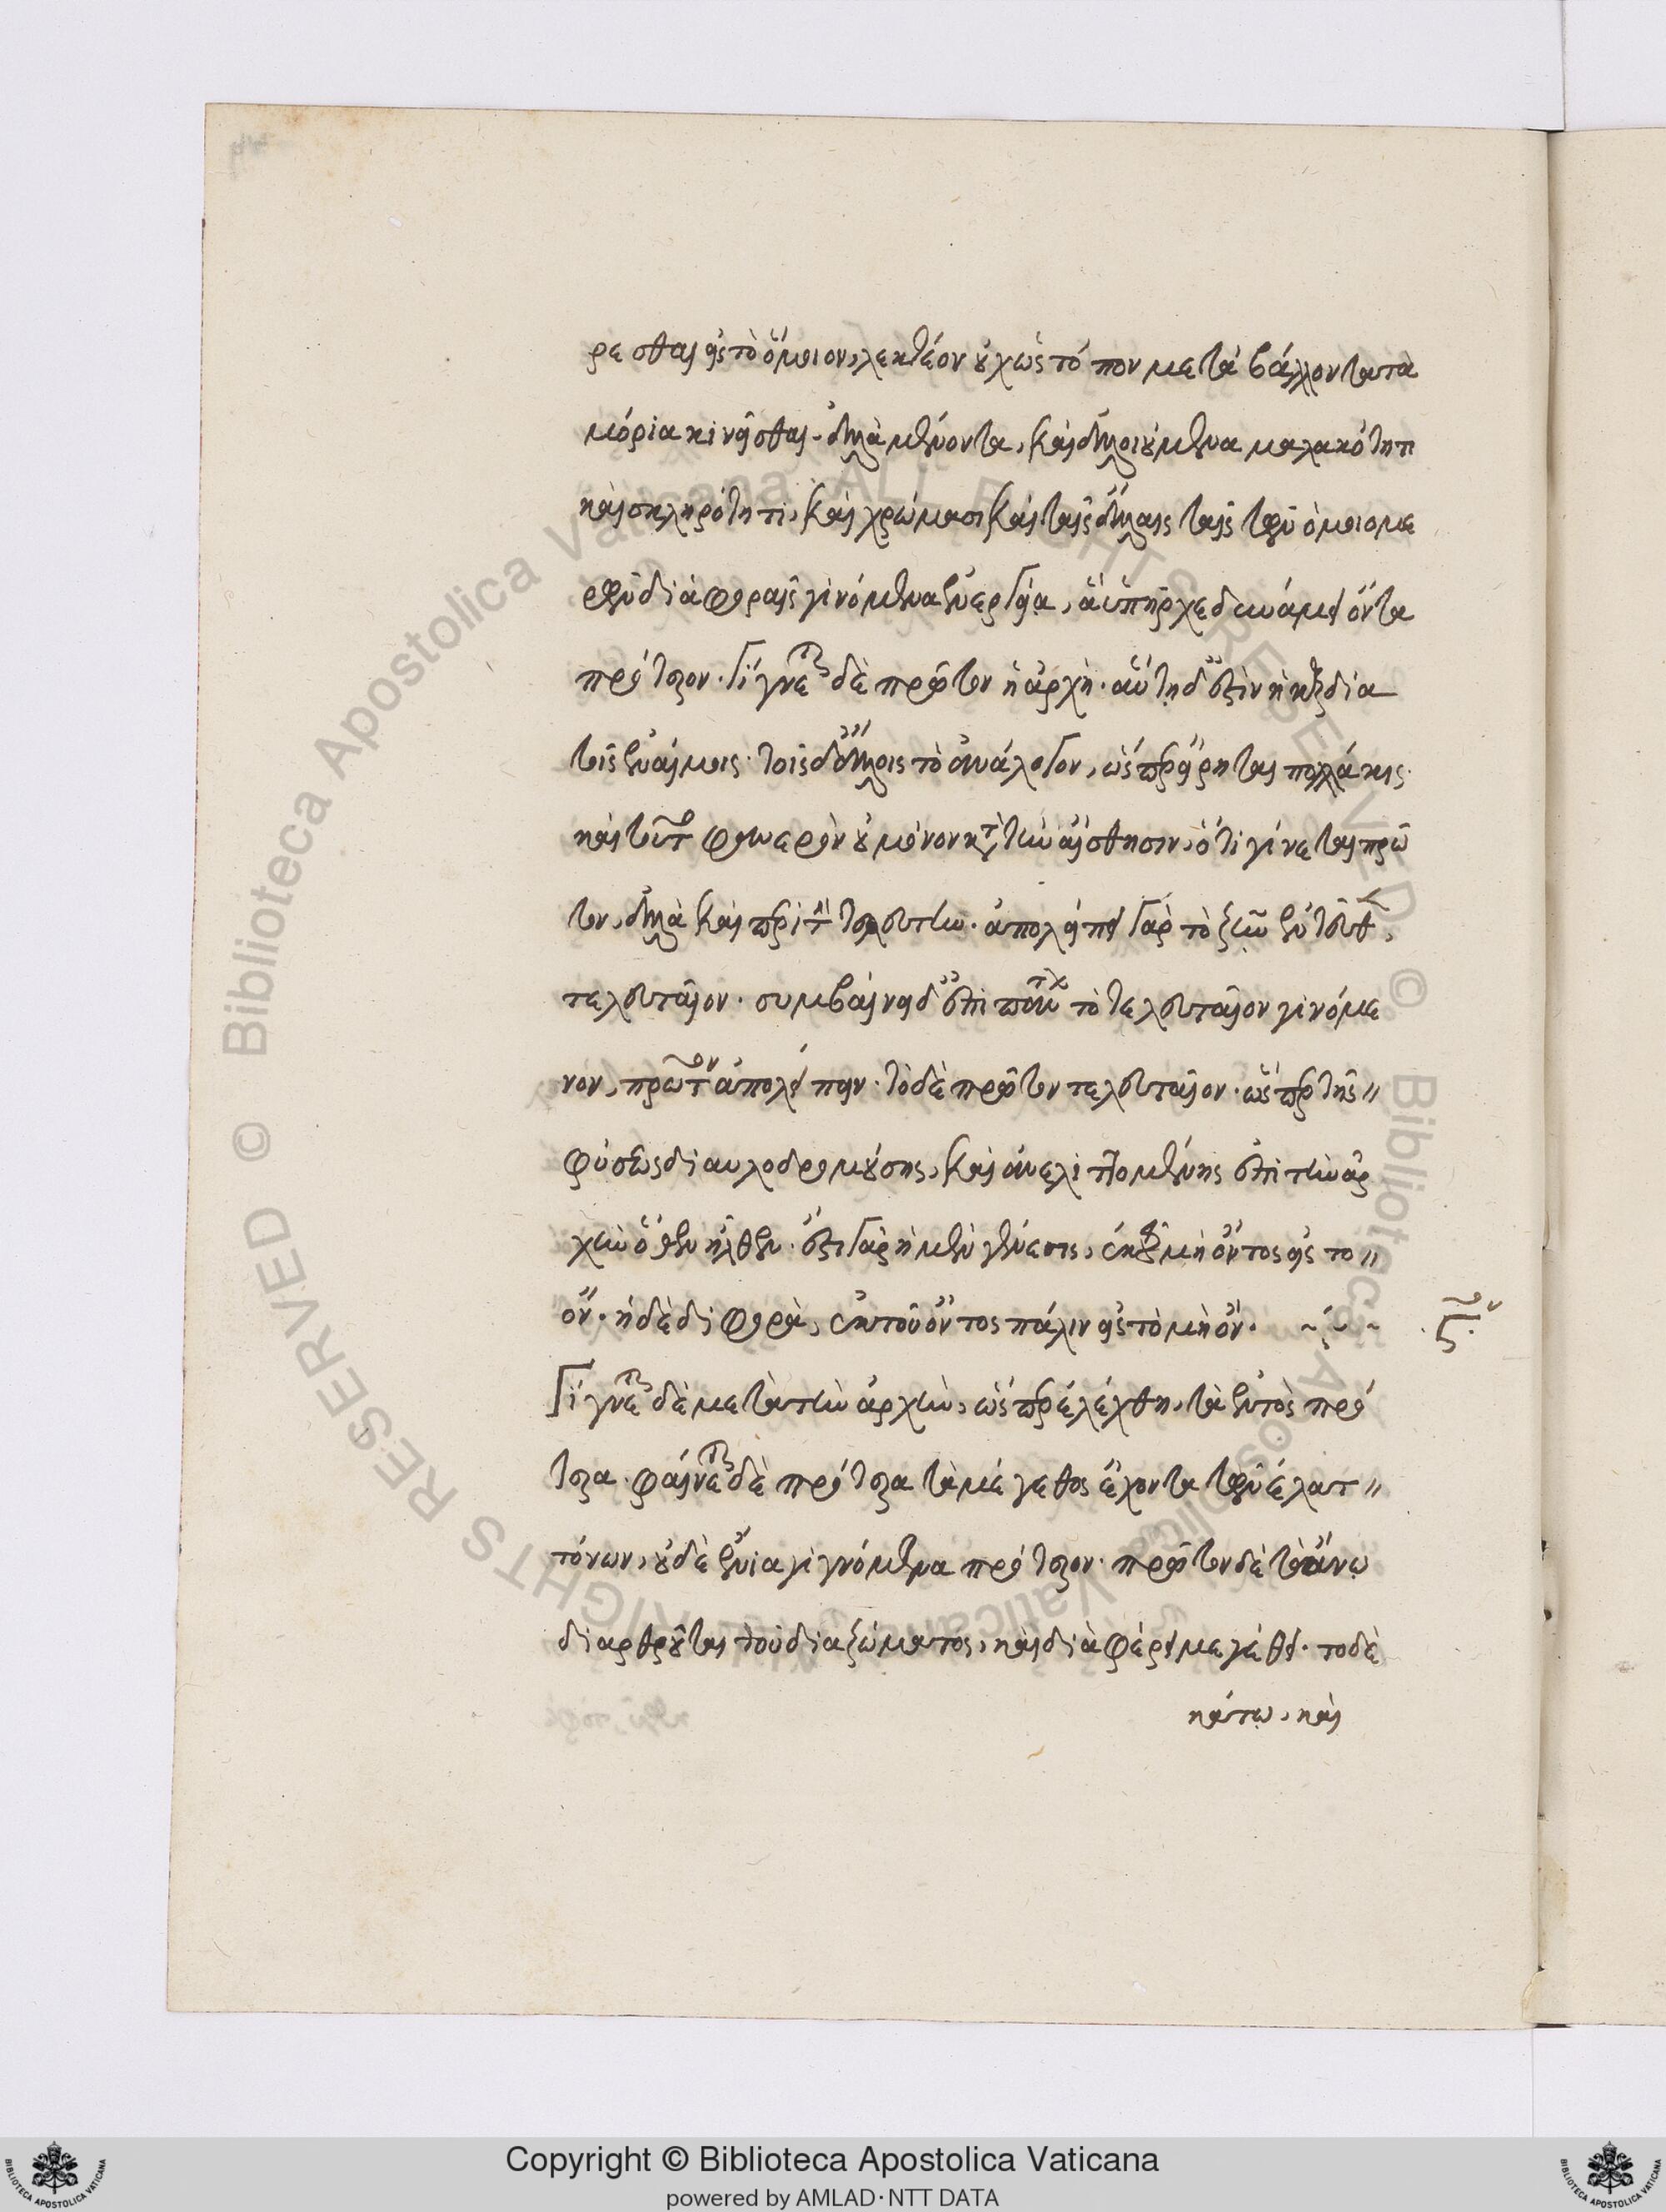 ρεσθαι εἰς τὸ ὅμοιον, λεκτέον οὐχ ὡς τόπον μεταβάλλοντα τὰ
μόρια κινεῖσθαι. ἀλλὰ μένοντα, καὶ ἀλλοιούμενα μαλακότητι
καὶ σκληρότητι, καὶ χρώμασι καὶ ταῖς ἄλλαις ταῖς τῶν ὁμοιομε
ρῶν διαφοραῖς γινόμενα ἐνεργείᾳ, ἃ ὑπῆρχε δυνάμει ὄντα
πρότερον. Γίγνεται δὲ πρῶτον ἡ ἀρχὴ. αὕτη δ' ἐστὶν ἡ καρδία
τοῖς ἐναίμοις. τοῖς δ' ἄλλοις τὸ ἀνάλογον, ὥσπερ εἴρηται πολλάκις.
καὶ τοῦτο φανερὸν οὐ μόνον κατὰ τὴν αἴσθησιν, ὅτι γίνεται πρῶ
τον, ἀλλὰ καὶ περὶ τὴν τελευτὴν. ἀπολείπει γὰρ τὸ ζῆν ἐντεῦθεν,
τελευταῖον. συμβαίνει δ' ἐπὶ πάντων τὸ τελευταῖον γινόμε
νον, πρῶτον ἀπολείπειν. τὸ δὲ πρῶτον τελευταῖον. ὥσπερ τῆς
φύσεως διαυλοδρομούσης, καὶ ἀνελιττομένης ἐπὶ τὴν ἀρ
χὴν ὅθεν ἦλθεν. ἔστι γὰρ ἡ μὲν γένεσις, ἐκ τοῦ μὴ ὄντος εἰς το
ὄν. ἡ δὲ διφορὰ, ἐκ τοῦ ὄντος πάλιν εἰς τὸ μὴ ὄν.
Γίγνεται δὲ μετὰ τὴν ἀρχὴν, ὥσπερ ἐλέχθη, τὰ ἐντὸς πρό
τερα. φαίνεται δὲ πρότερα τὰ μέγεθος ἔχοντα τῶν ἐλατ
τόνων, οὐδὲ ἔνια γιγνόμενα πρότερον. πρῶτον δὲ τὰ ἄνω
διαρθροῦται τοῦ διαζώματος, καὶ διαφέρει μεγέθει. το δὲ
κάτω, καὶ
Copyright © Biblioteca Apostolica Vaticana
powered by AMLAD·NTT DATA